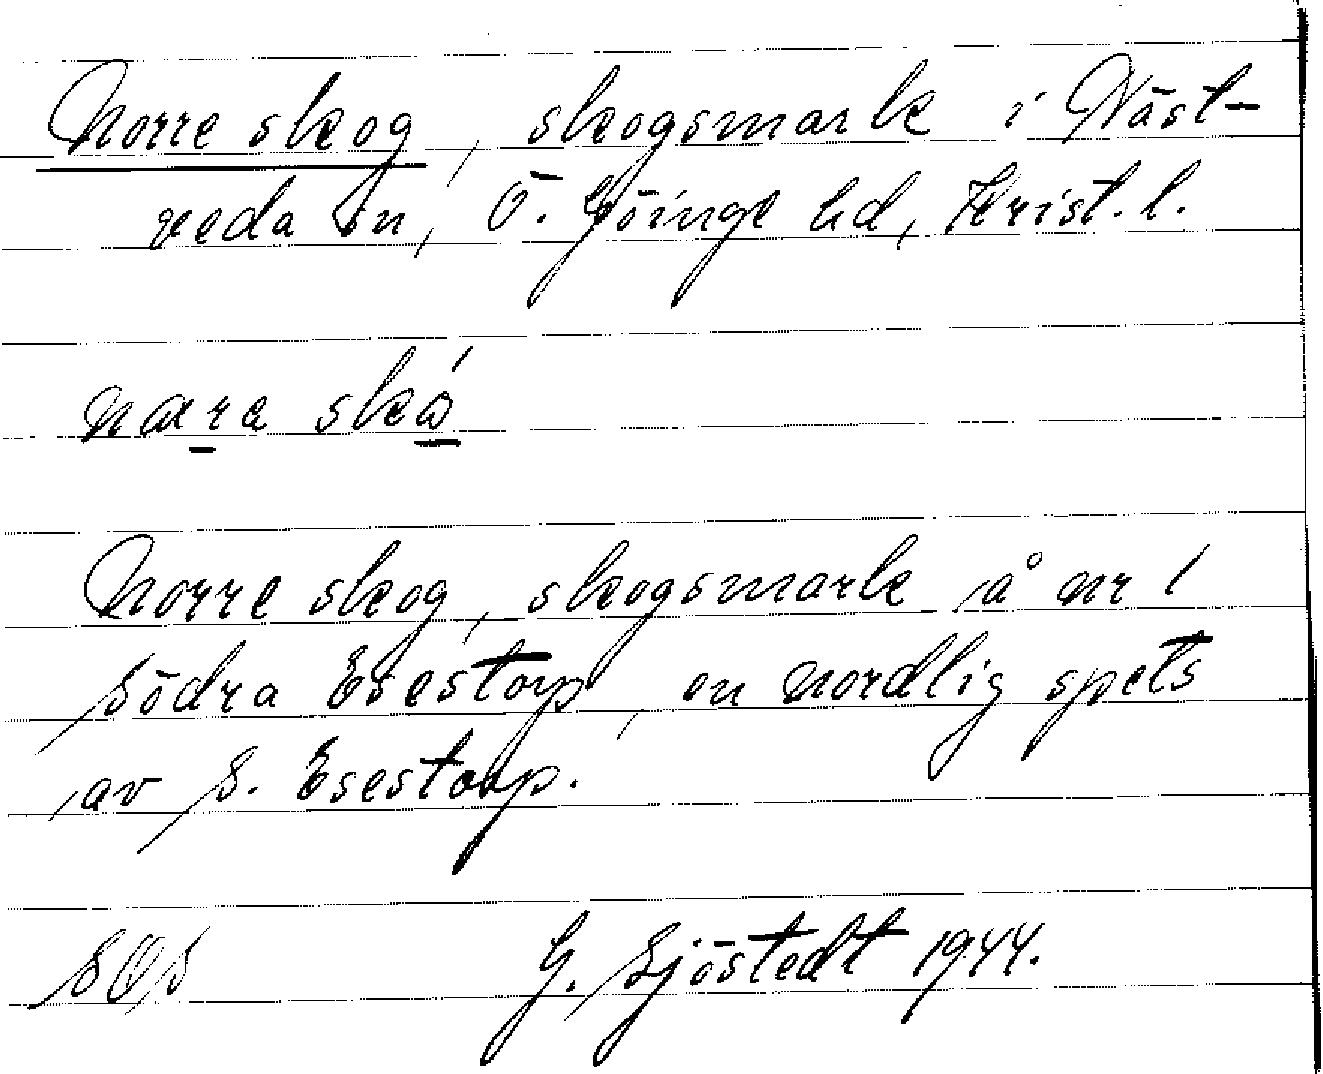 Norre skog, skogsmark i Näst-
veda sn, Ö. Göinge hd, Krist. l.
nara skó
Norre skog, skogsmark å nr 1
Södra Esestorp, en nordlig spets
av S. Esestorp.
SOS G. Sjöstedt 1944.